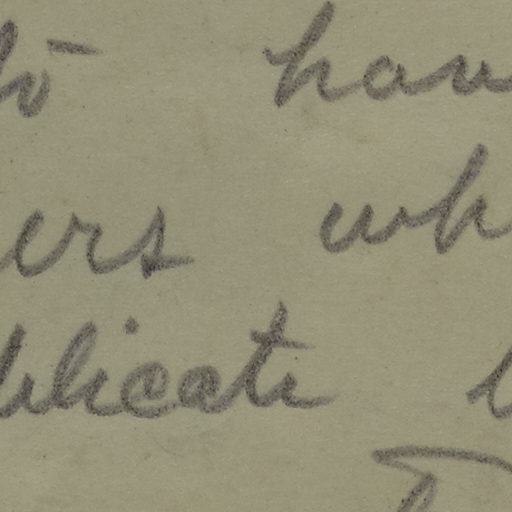 to hav
ers wh
plicate